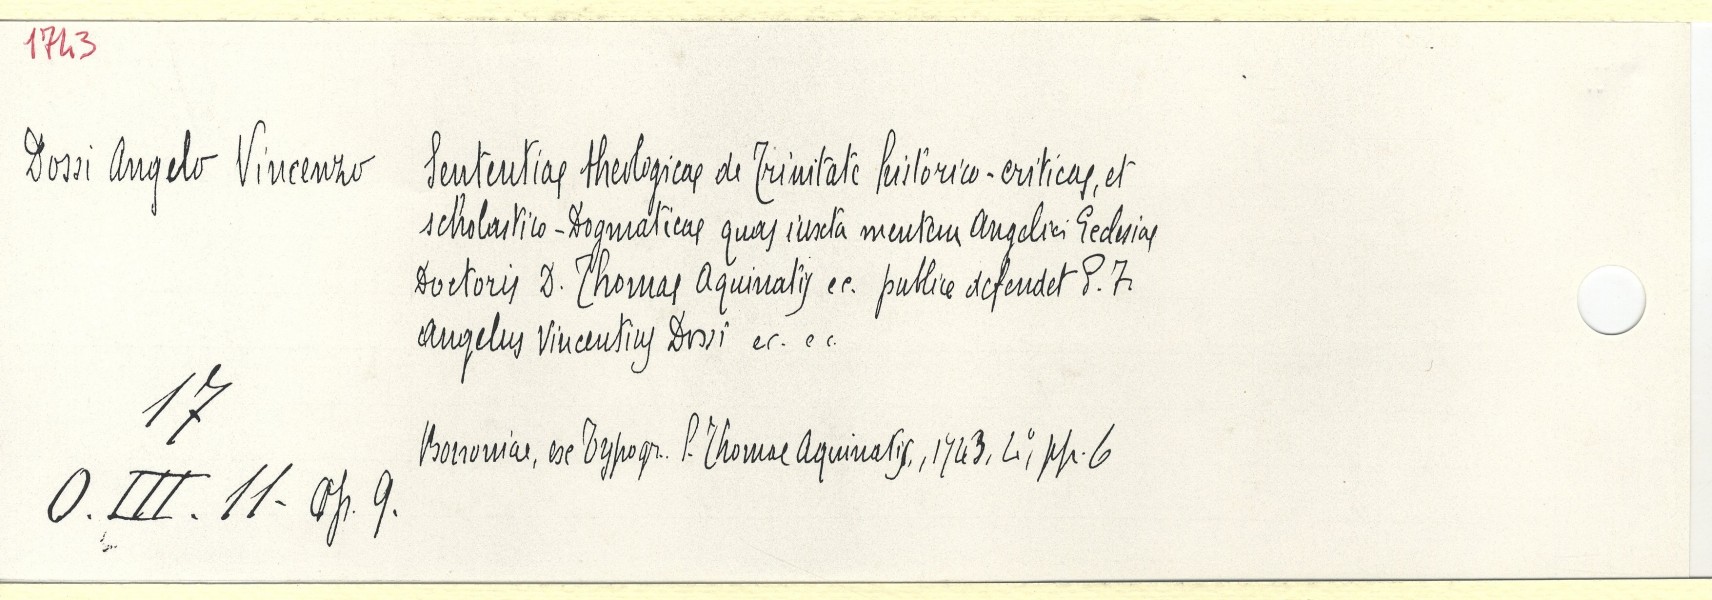 1743
Dossi Angelo Vincenzo
Sententiae theologicae de Trinitate historico-criticae, et
scholastico-Dogmaticae quas iuxta mentem Angelici Ecclesiae
Doctoris D. Thomae Aquinatis ec. publice defendet P. F.
Angelus Vincentius Dossi ec. ec.
Bononiae, ex Typogr. S. Thomae Aquinatis, 1743, 4°, pp. 6
17
O. III. 11- Op. 9.